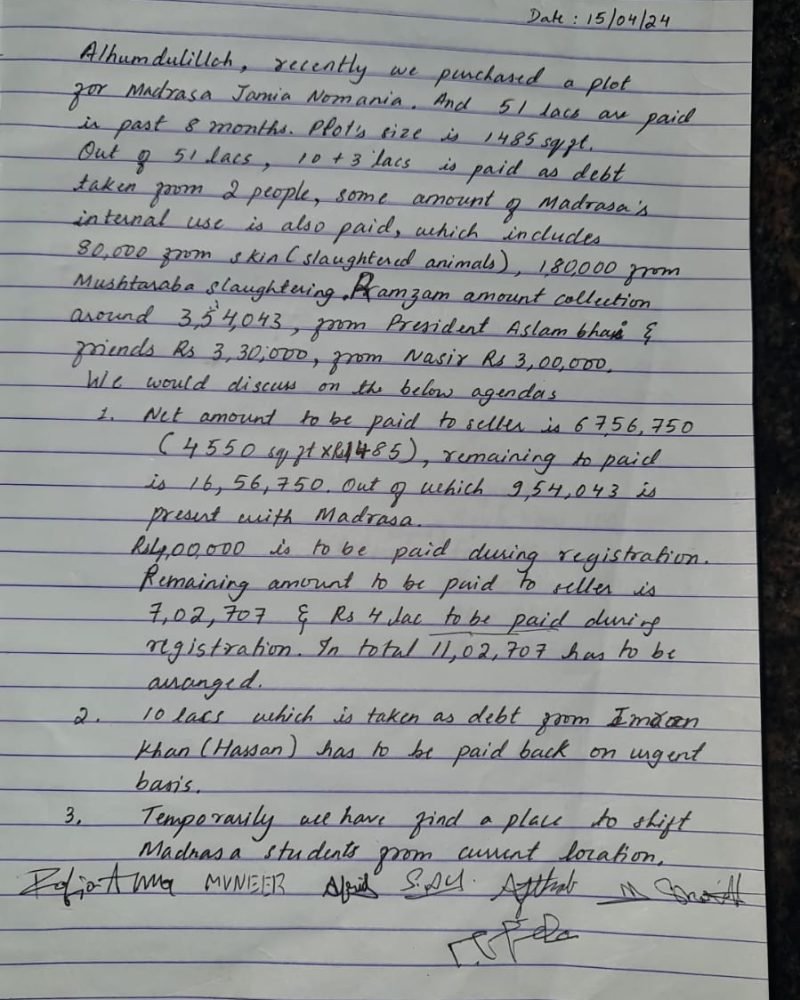 Date : 15/04/24
Alhumdulillah, recently we purchased a plot
for Madrasa Jamia Nomania. And 51 lacs are paid
in past 8 months. Plot's size is 1485 sq ft.
Out of 51 lacs, 10 + 3 lacs is paid as debt
taken from 2 people, some amount of Madrasa's
internal use is also paid, which includes
80,000 from skin (slaughtered animals), 1,80,000 from
Mushtaraba slaughtering. Ramzam amount collection
around 3,54,043, from President Aslam bhai &
friends Rs 3,30,000, from Nasir Rs 3,00,000.
We would discuss on the below agendas
1. Net amount to be paid to seller is 67,56,750
(4550 sq ft x Rs 1485), remaining to paid
is 16,56,750. Out of which 9,54,043 is
present with Madrasa.
Rs 4,00,000 is to be paid during registration.
Remaining amount to be paid to seller is
7,02,707 & Rs 4 lac to be paid during
registration. In total 11,02,707 has to be
arranged.
2. 10 lacs which is taken as debt from Imran
Khan (Hassan) has to be paid back on urgent
basis.
3. Temporarily we have find a place to shift
Madrasa students from current location.
MUNEER